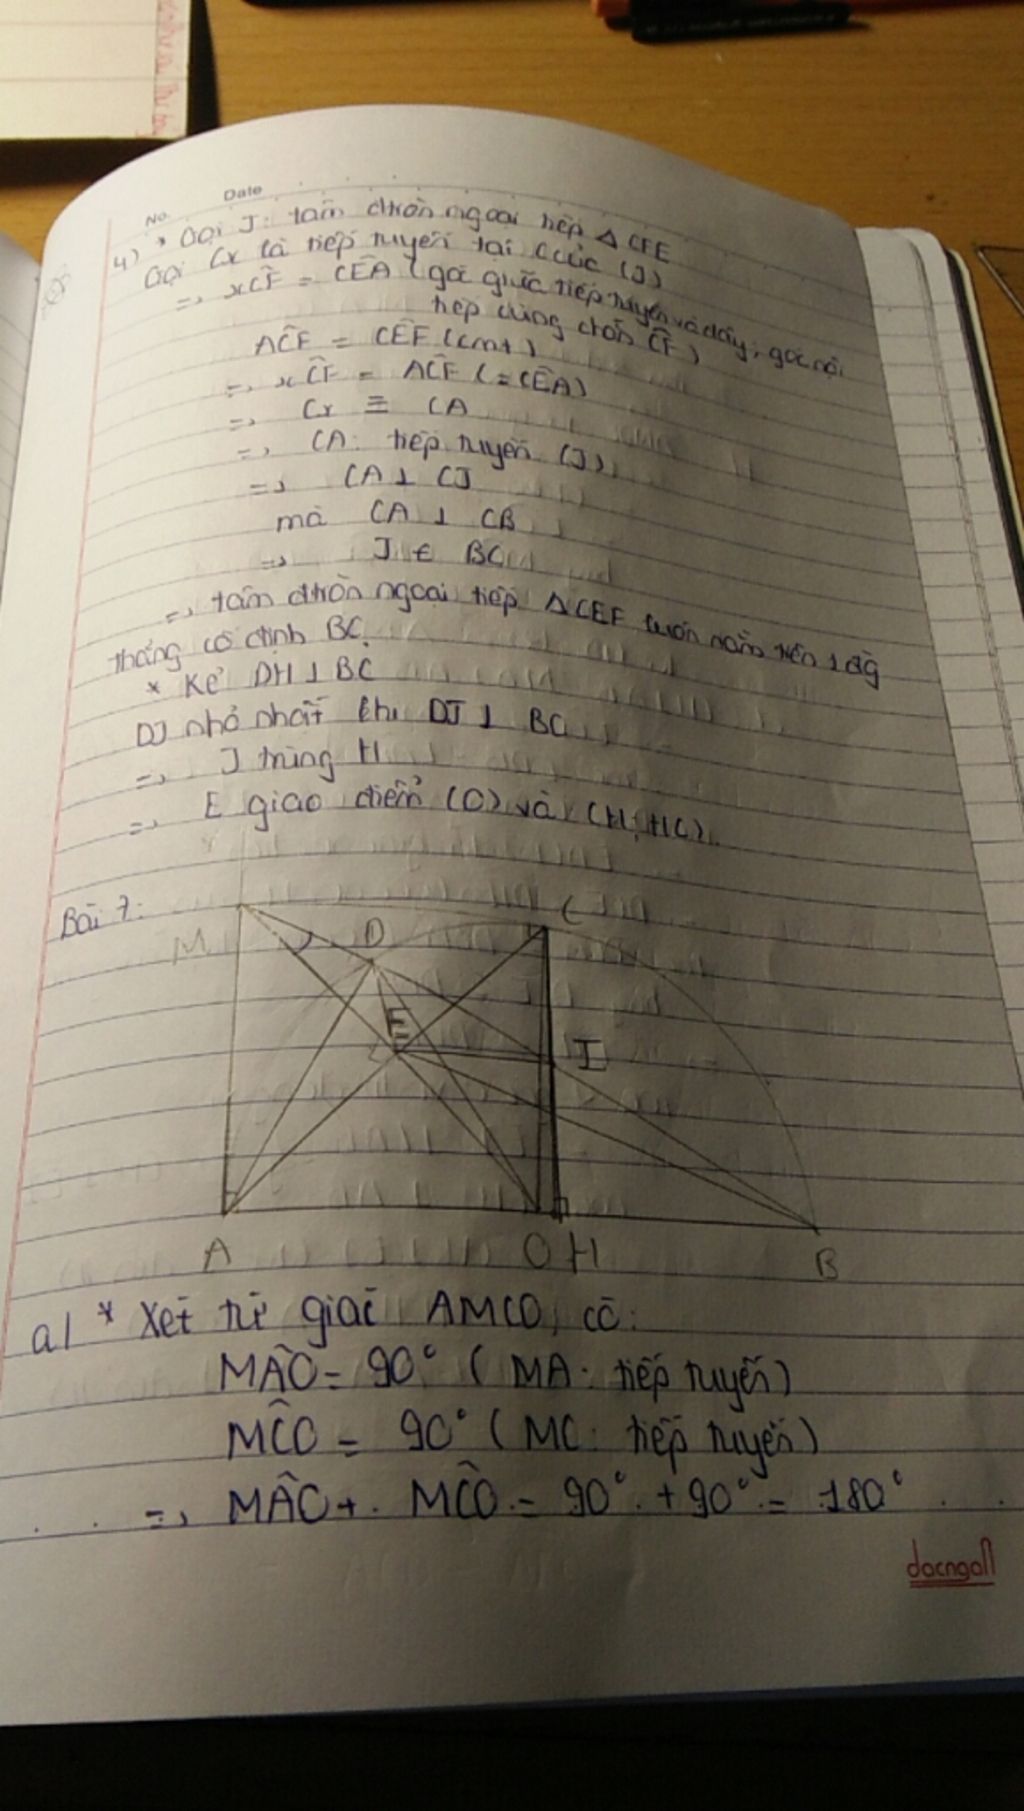 No. Date
4) * Gọi J: tâm đtròn ngoại tiếp △ CFE
Gọi Cx là tiếp tuyến tại C của (J)
=> xĈF = CÊA (góc giữa tiếp tuyến và dây, góc nội
tiếp cùng chắn C͡F)
AĈF = CÊF (cmt)
=> xĈF = AĈF (= CÊA)
=> Cx ≡ CA
=> CA: tiếp tuyến (J)
=> CA ⊥ CJ
mà CA ⊥ CB
=> J ∈ BC
=> tâm đtròn ngoại tiếp △CEF luôn nằm trên 1 đg
thẳng cố định BC.
* Kẻ DH ⊥ BC
DJ nhỏ nhất khi DJ ⊥ BC
=> J trùng H
=> E giao điểm (O) và (H; HC).
Bài 7:
M D C
E I
A O H B
a/ * Xét tứ giác AMCO, có:
MÂO = 90° ( MA: tiếp tuyến)
MĈO = 90° ( MC: tiếp tuyến)
=> MÂO + MĈO = 90° + 90° = 180°